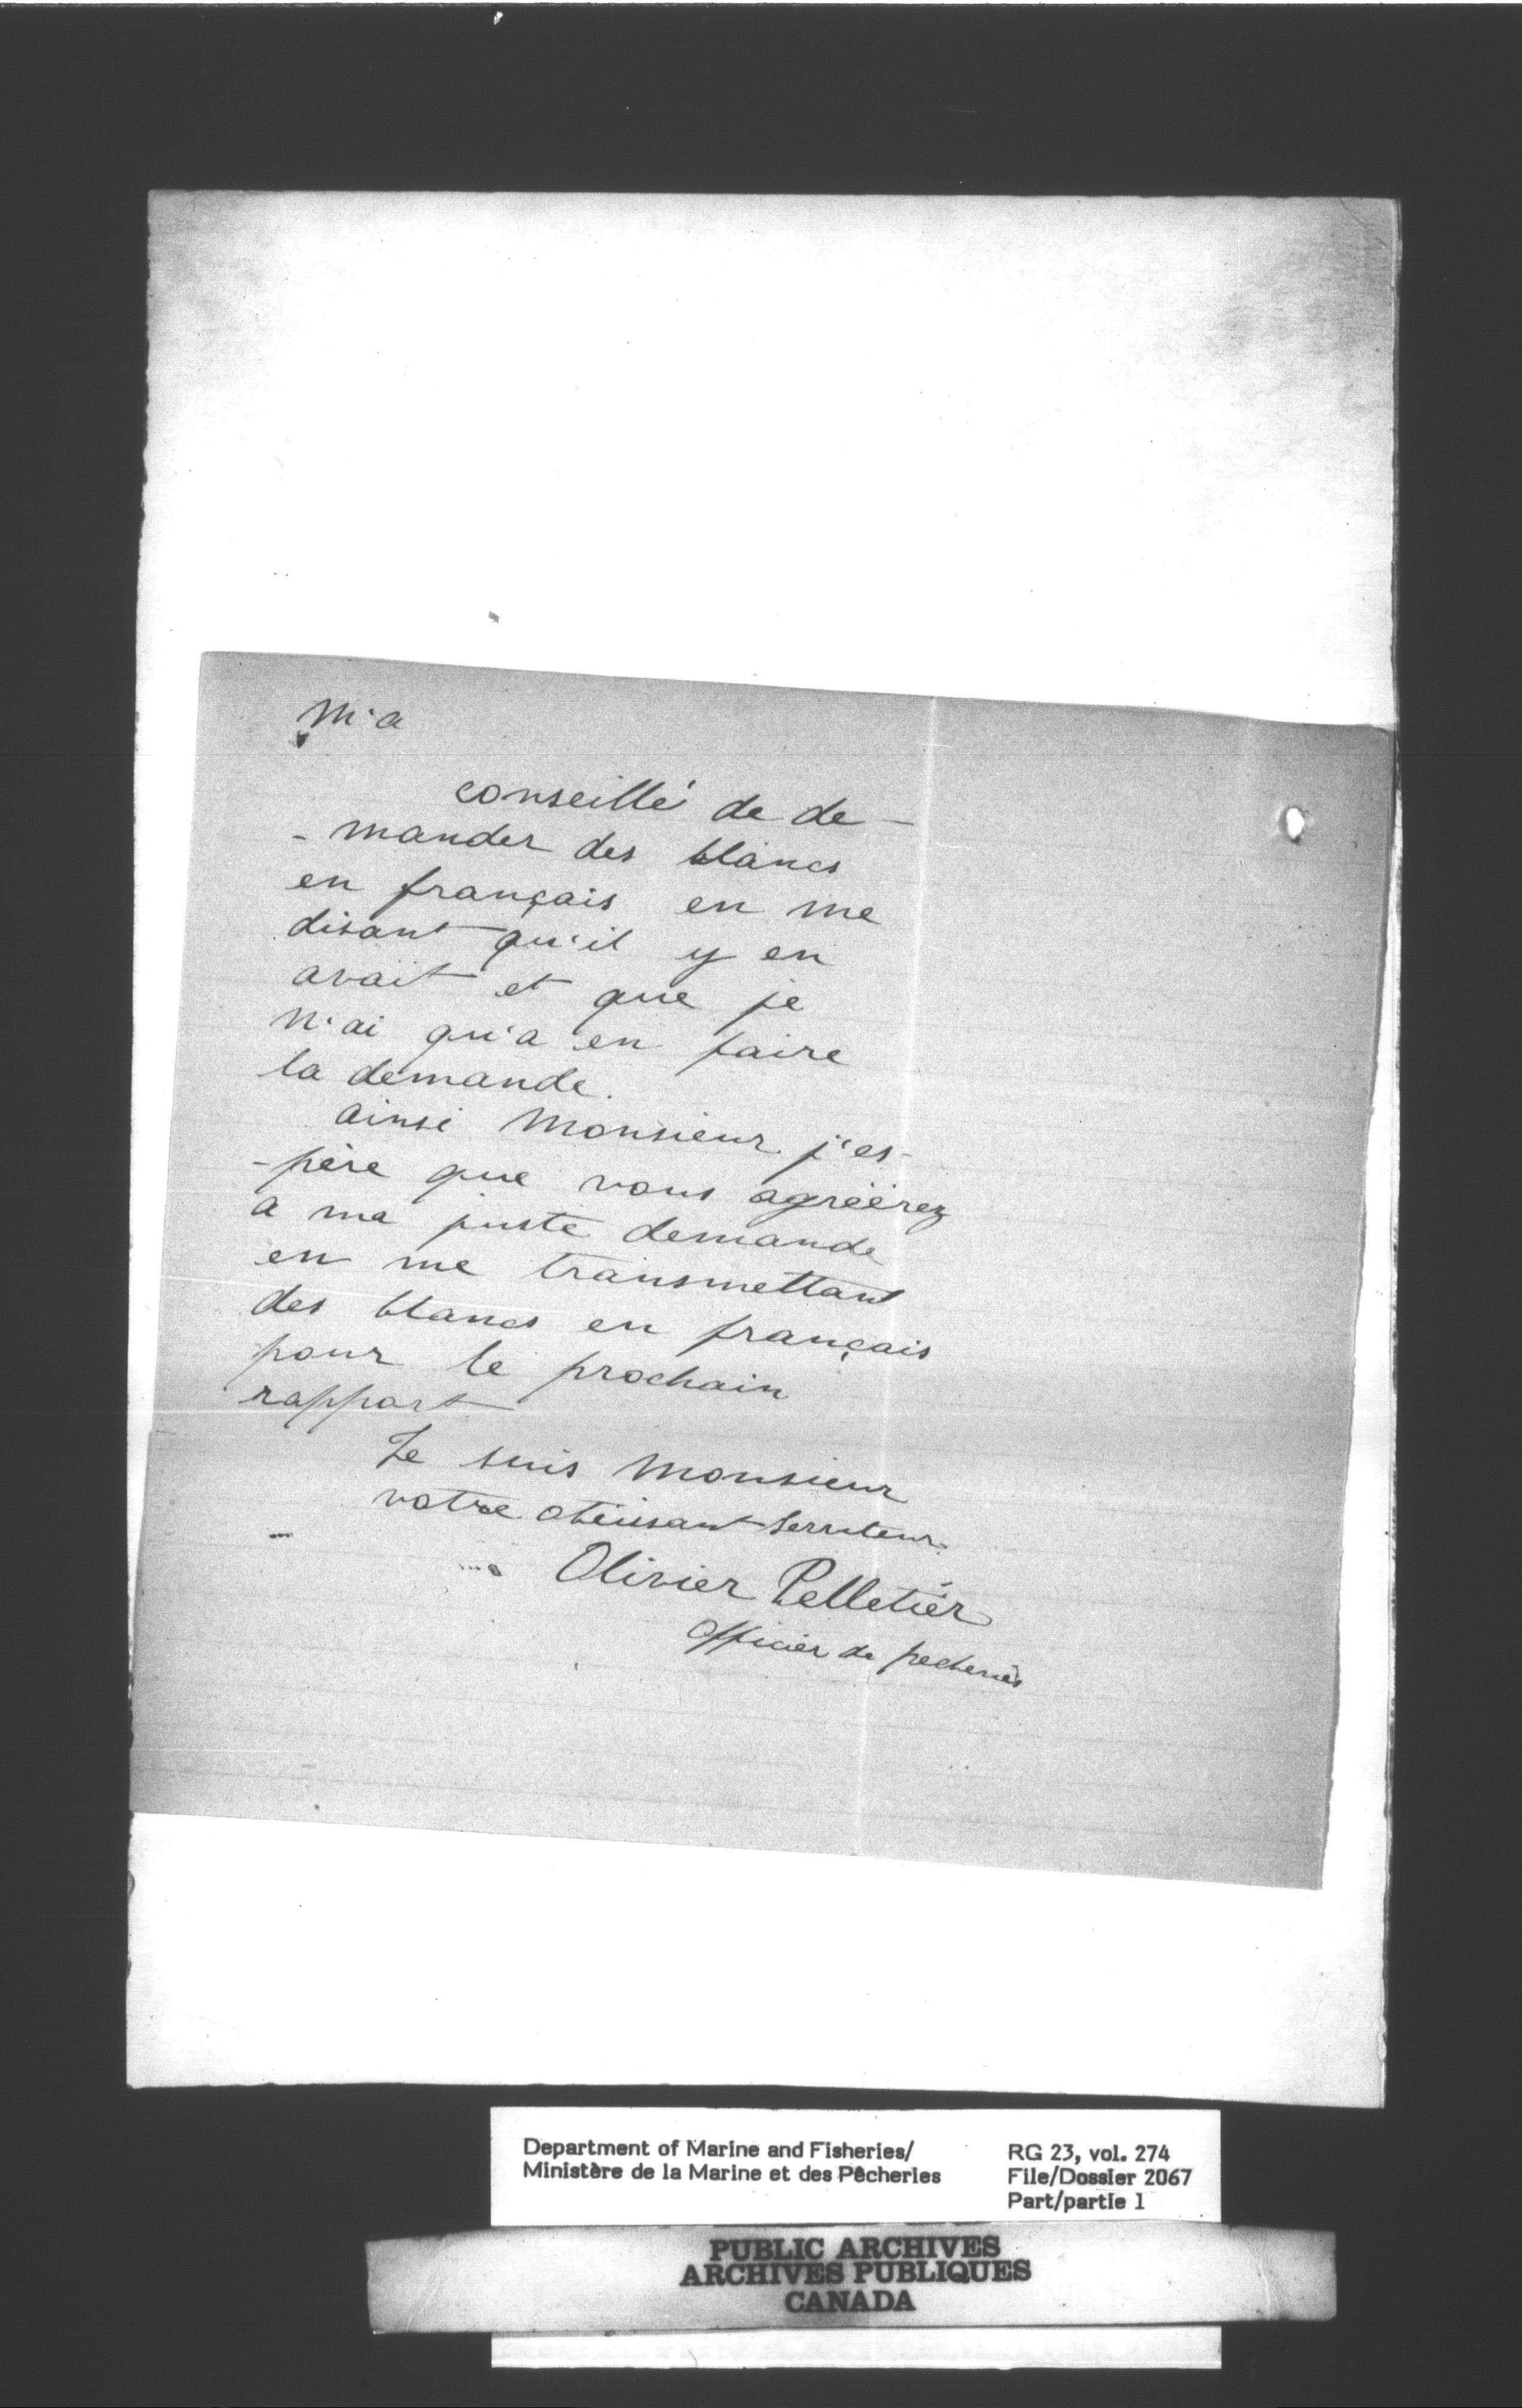 m'a
conseillé de de-
-mander des blancs
en français en me
disant qu'il y en
avait et que je
n'ai qu'a en faire
la demande.
ainsi Monsieur j'es-
-père que vous agréérez
a ma juste demande
en me transmettant
des blancs en français
pour le prochain
rapport
Je suis Monsieur
votre obéissant Serviteur.
Olivier Pelletiér
Officier de pecheries
Department of Marine and Fisheries/
Ministère de la Marine et des Pêcheries
RG 23, vol. 274
File/Dossier 2067
Part/partie 1
PUBLIC ARCHIVES
ARCHIVES PUBLIQUES
CANADA